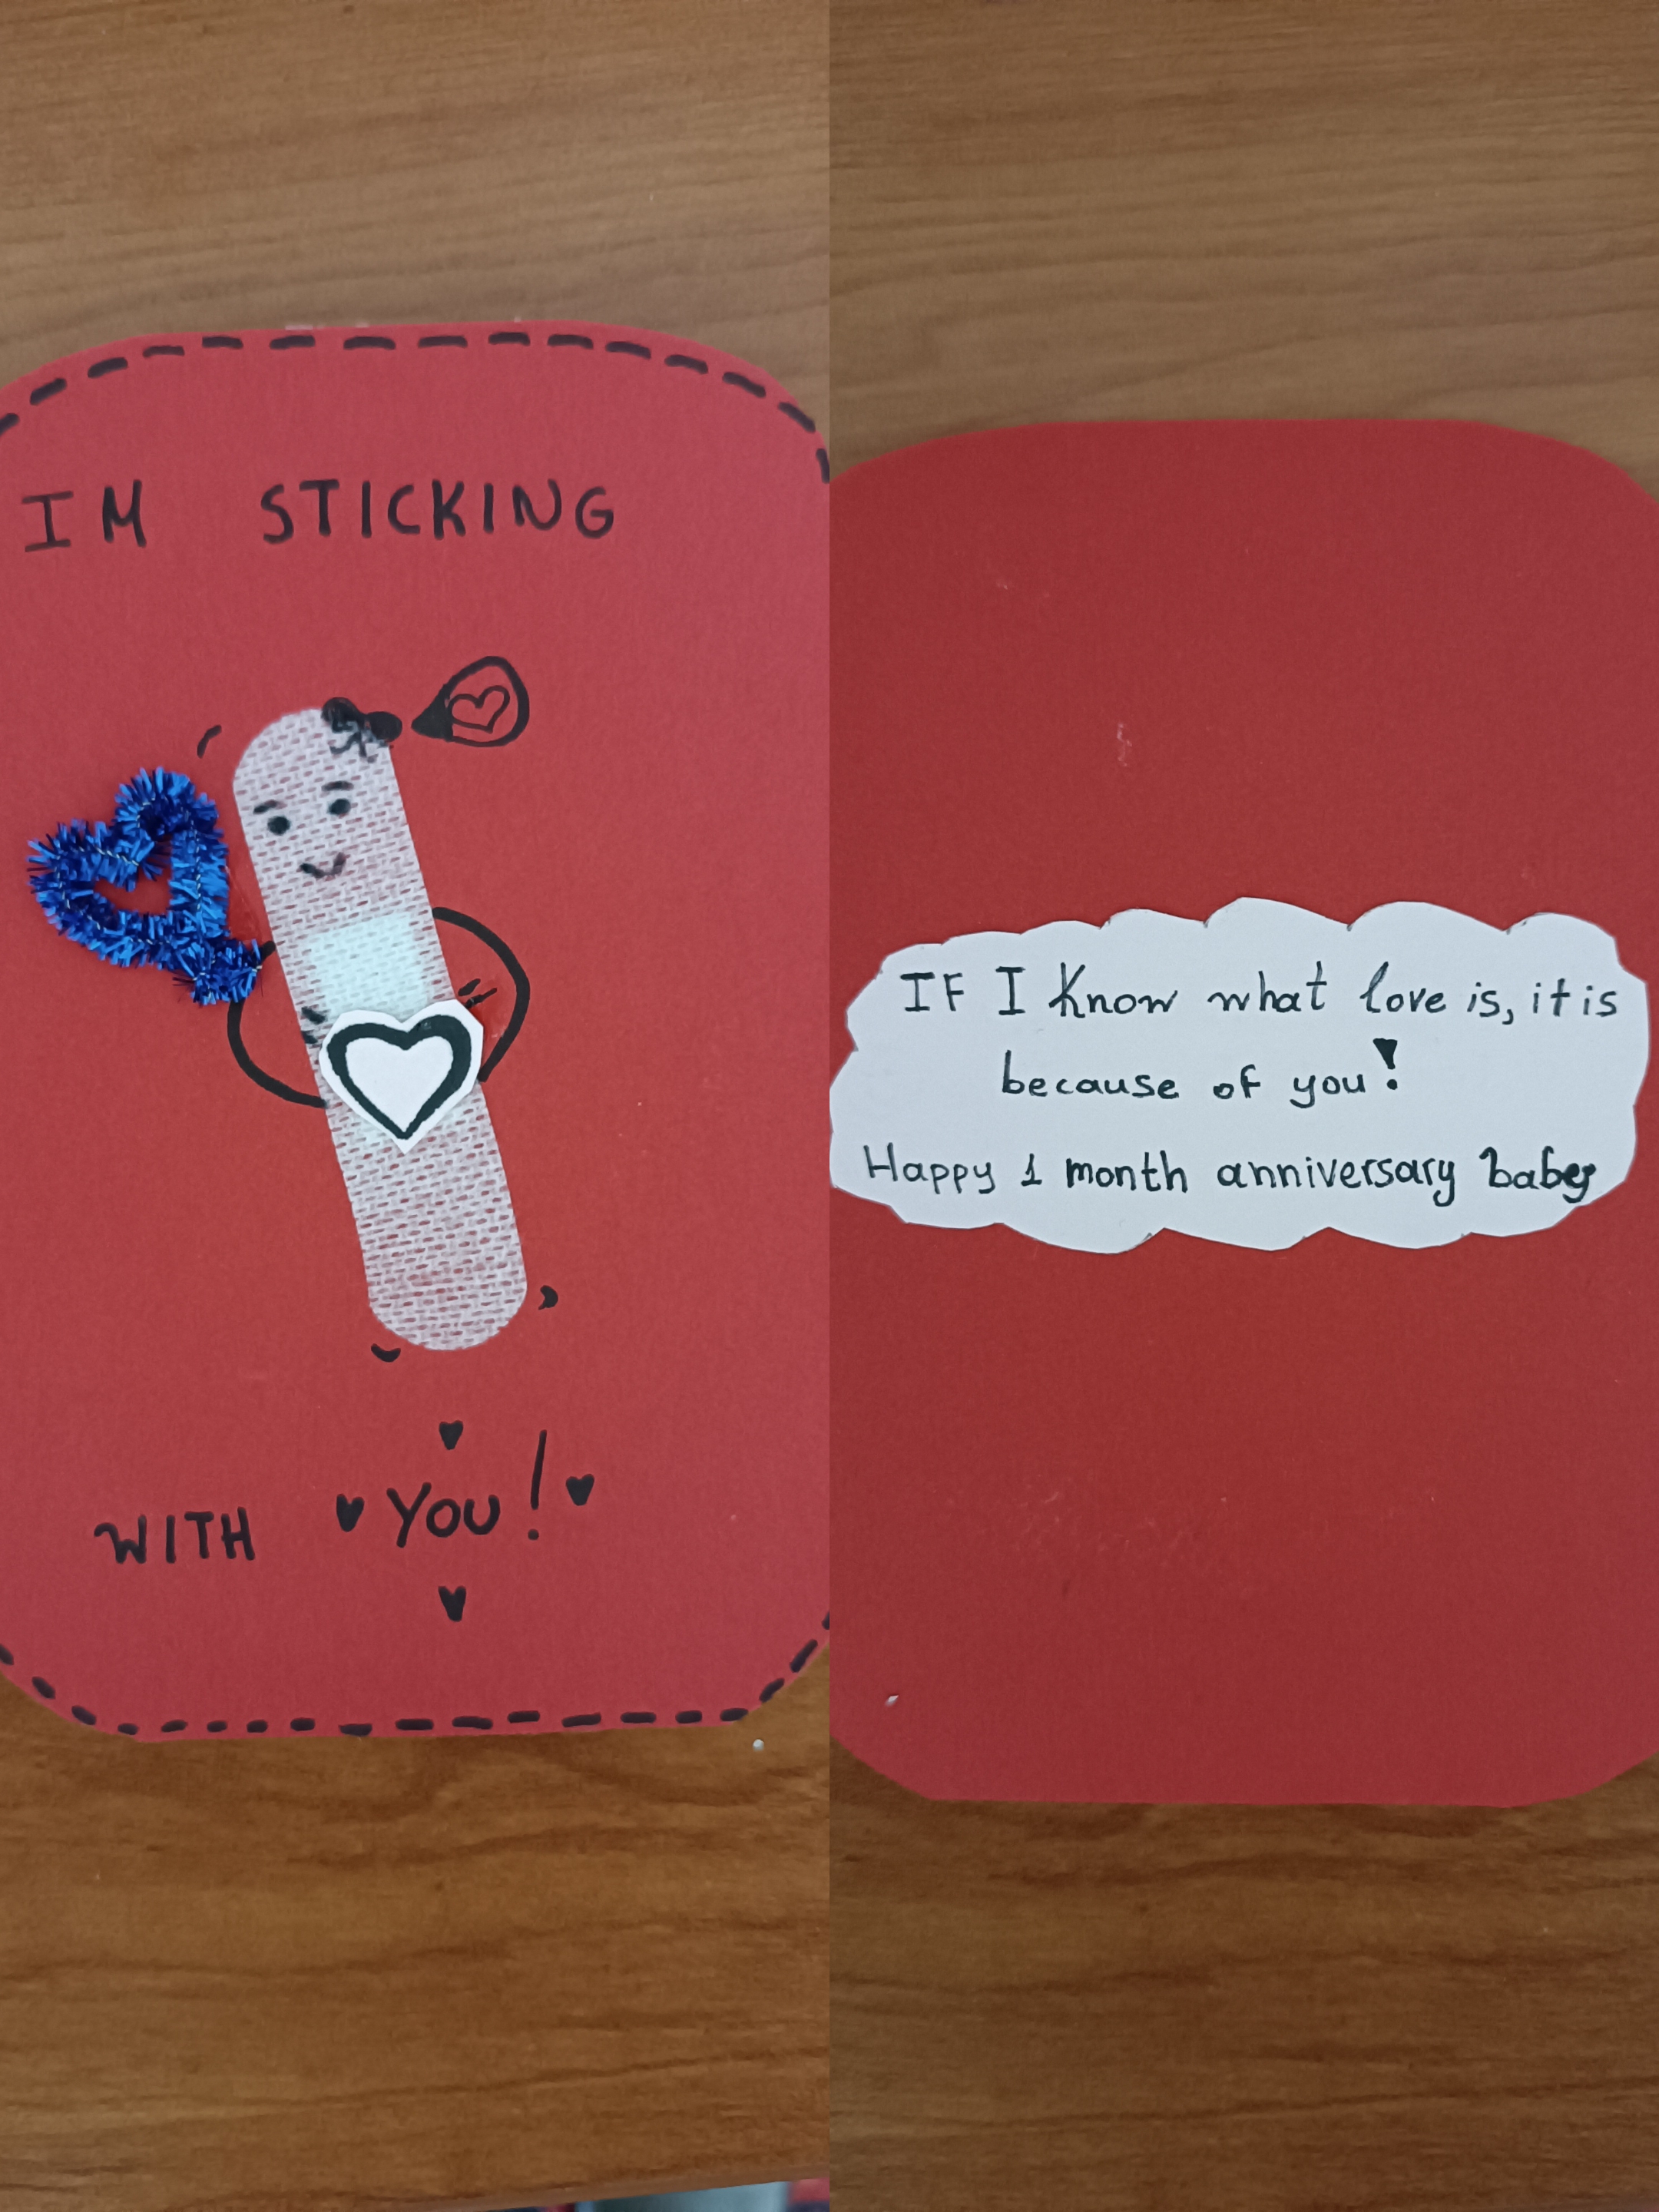 IM STICKING
WITH YOU!
IF I Know what love is, it is
because of you!
Happy 1 month anniversary baby